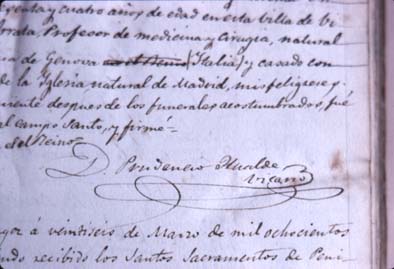 cuenta y cuatro años de edad en esta villa de Vi
Profesor de medicina y Cirugia, natural
de Genova en el Reino (Italia) y casado con
de la Iglesia natural de Madrid, mis feligreses y
mente despues de los funerales acostumbrados, fué
al campo Santo, y firmé=
del Reino=
D. Prudencio
Vicario
á veintiseis de Marzo de mil ochocientos
ndo recibido los Santos Sacramentos de Peni-